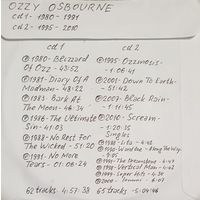 OZZY OSBOURNE
cd 1 - 1980 - 1991
cd 2 - 1995 - 2010
cd 1
1980 - Blizzard
Of Ozz - 43:52
1981 - Diary Of A
Madman - 48:22
1983 - Bark At
The Moon - 46:34
1986 - The Ultimate
Sin - 41:03
1988 - No Rest For
The Wicked - 51:20
1991 - No More
Tears - 01:06:24
62 tracks - 4:57:38
cd 2
1995 - Ozzmosis -
1:06:41
2001 - Down To Earth -
- 51:42
2007 - Black Rain -
1:11:45
2010 - Scream -
1:20:35
Singles
65 tracks - 5:04:46